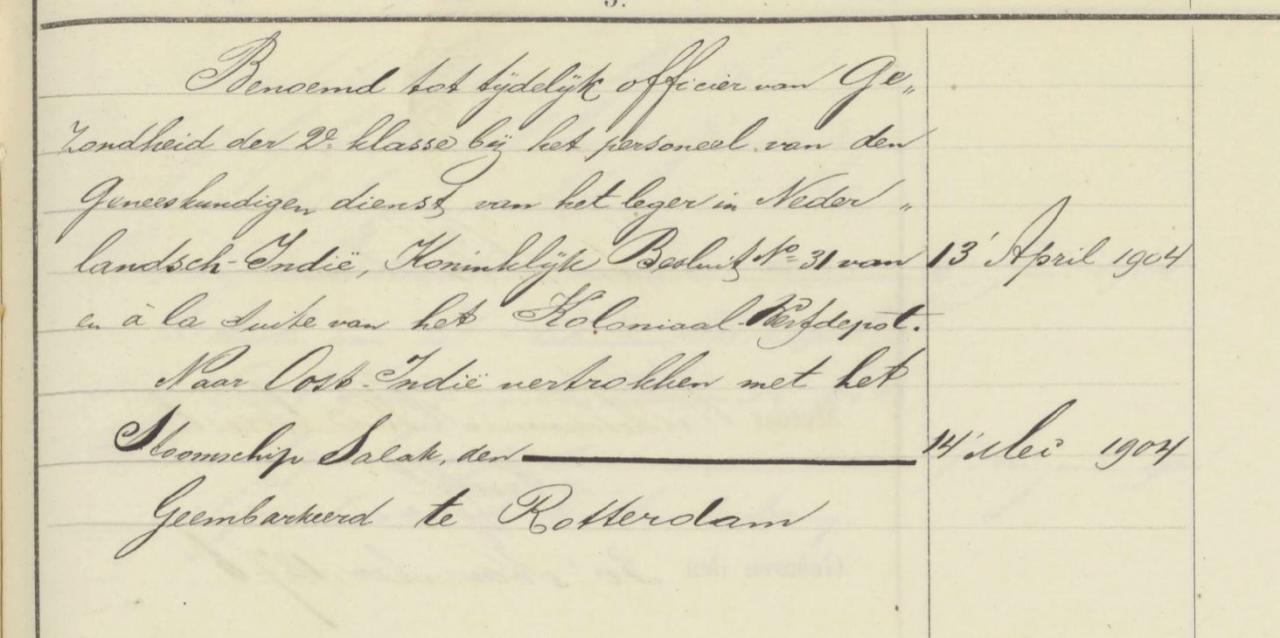 Benoemd tot tijdelijk officier van Ge„
zondheid der 2e klasse bij het personeel van den
Geneeskundigen dienst van het leger in Neder„
landsch-Indië, Koninklijk Besluit No 31 van 13 April 1904
en à la suite van het Koloniaal-Werfdepôt.
Naar Oost-Indië vertrokken met het
Stoomschip Salak, den 14 Mei 1904
Geembarkeerd te Rotterdam